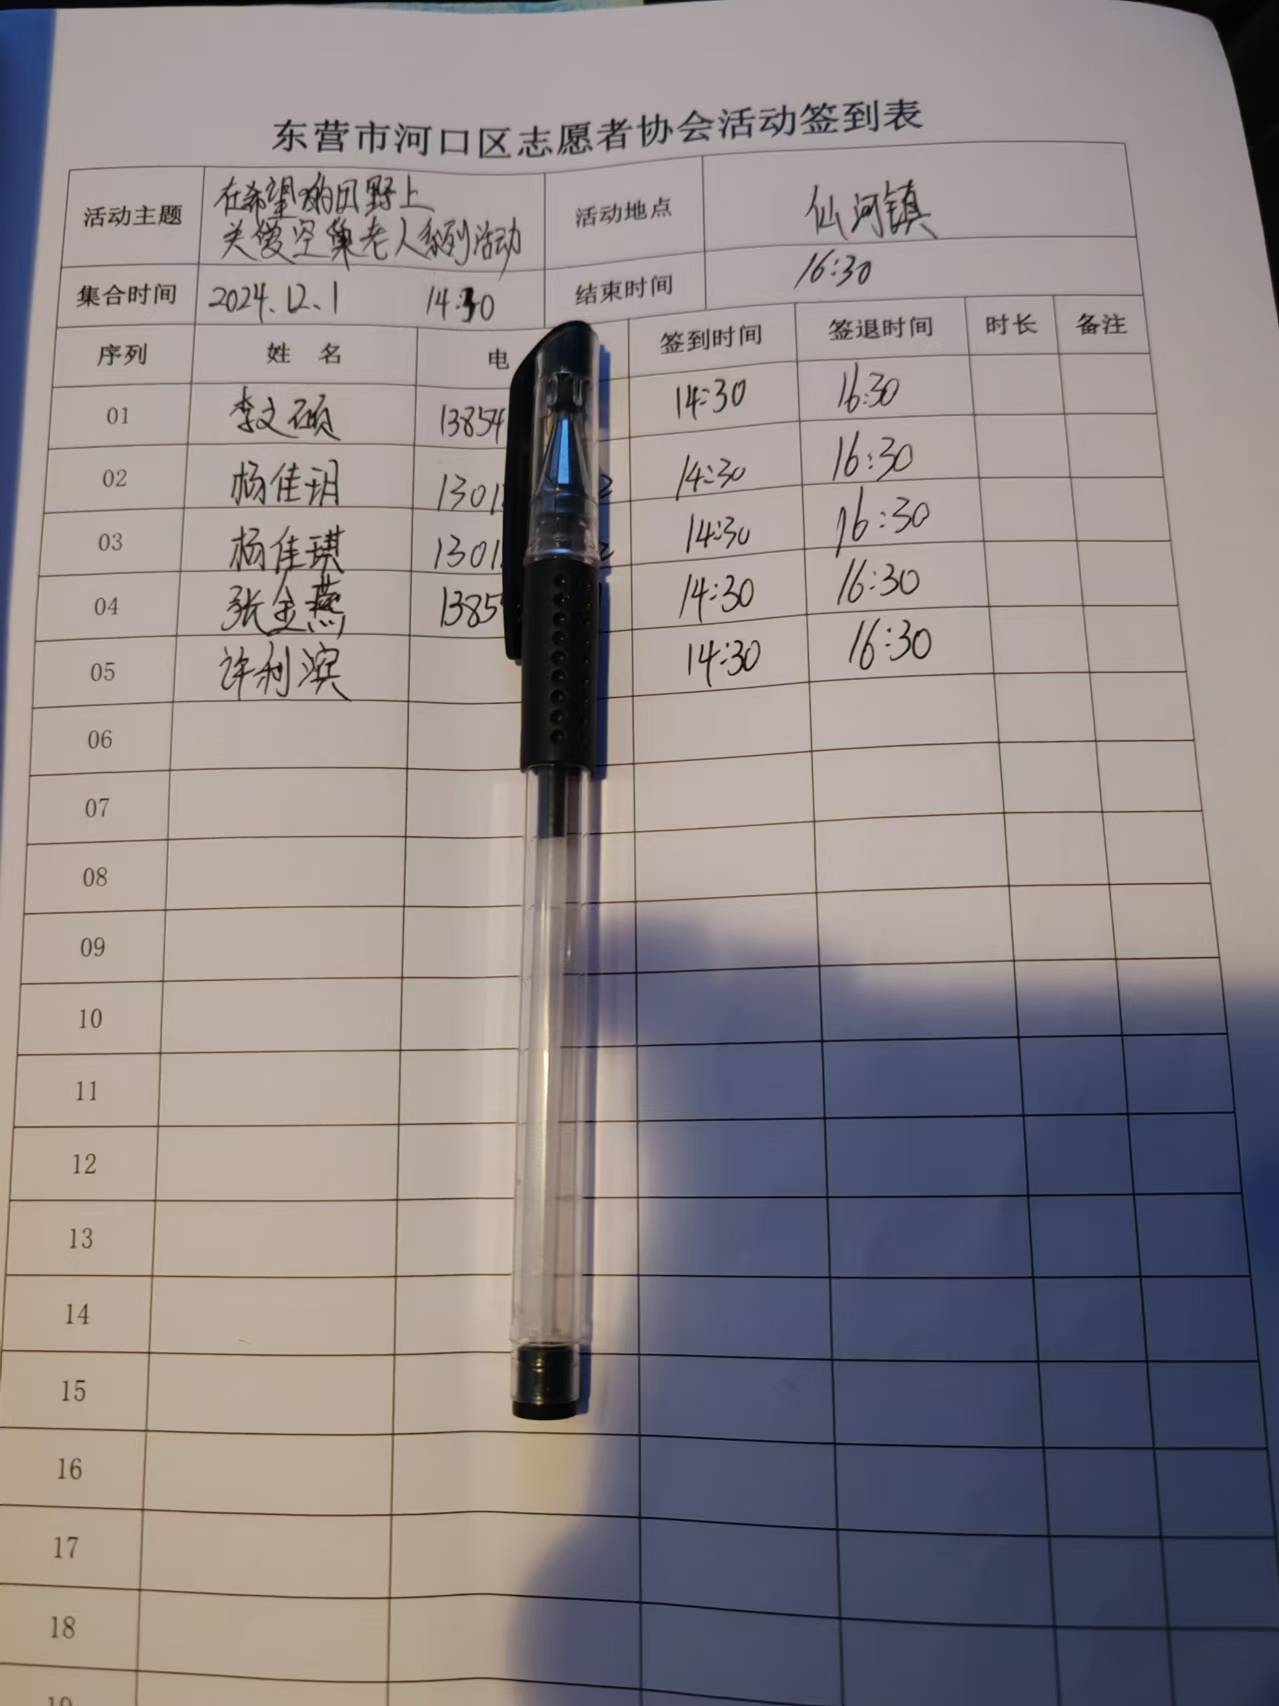 东营市河口区志愿者协会活动签到表
活动主题 在希望的田野上 关爱空巢老人系列活动 活动地点 仙河镇
集合时间 2024.12.1 14:30 结束时间 16:30
序列 姓 名 电 签到时间 签退时间 时长 备注
01 李文硕 13854 14:30 16:30
02 杨佳玥 1301 14:30 16:30
03 杨佳琪 1301 14:30 16:30
04 张金燕 1385 14:30 16:30
05 许利滨 14:30 16:30
06
07
08
09
10
11
12
13
14
15
16
17
18